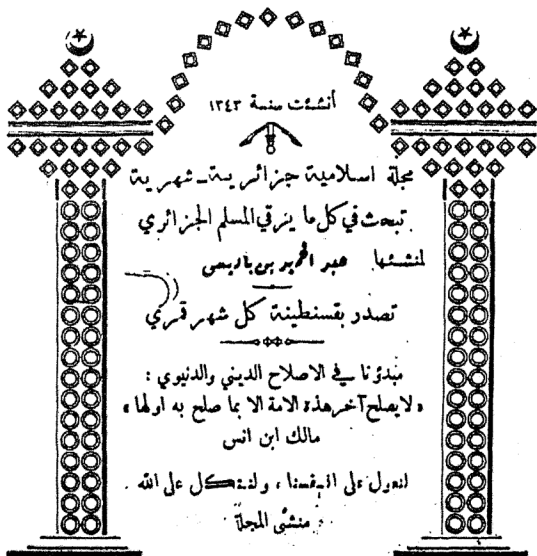 أنشئت سنة ١٣٤٣
مجلة اسلامية جزائرية ـ شهرية
تبحث في كل ما يرقي المسلم الجزائري
لمنشئها عبد الحميد بن باديس
تصدر بقسنطينة كل شهر قمري
مبدؤنا في الاصلاح الديني والدنيوي :
«لا يصلح آخر هذه الامة الا بما صلح به اولها»
مالك ابن انس
لنعول على انفسنا ، ولنتكل على الله .
منشئ المجلة